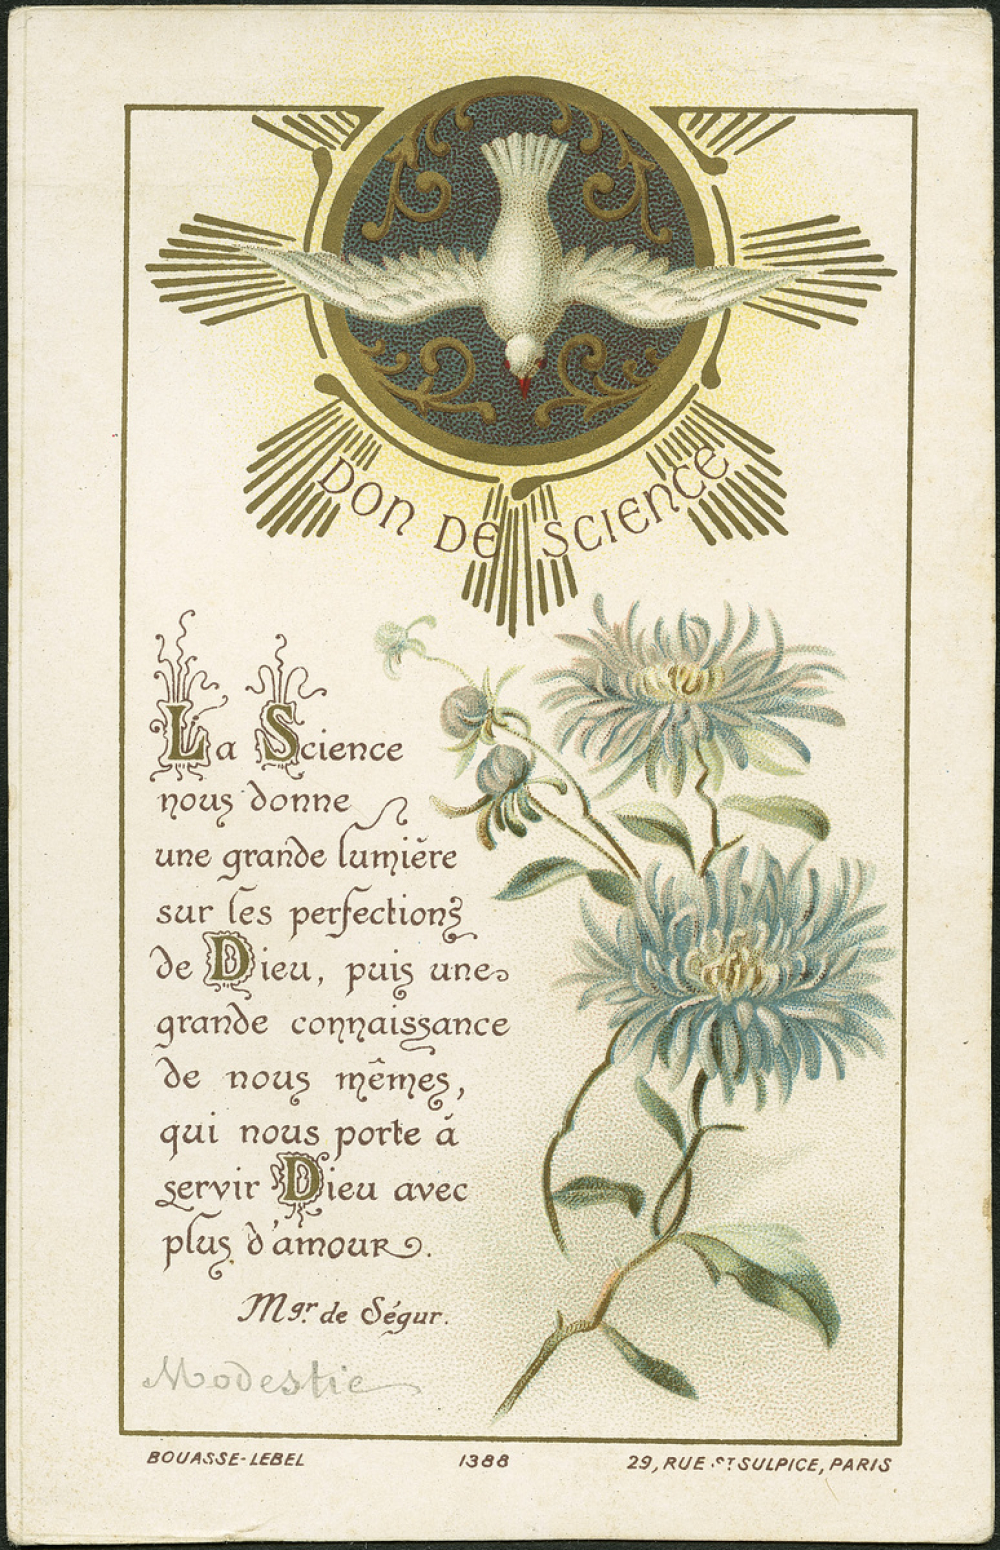 DON DE SCIENCE
La Science
nous donne
une grande lumière
sur les perfections
de Dieu, puis une
grande connaissance
de nous mêmes,
qui nous porte à
servir Dieu avec
plus d'amour.
Mgr. de Ségur.
Modestie
BOUASSE-LEBEL 1388 29, RUE ST SULPICE, PARIS